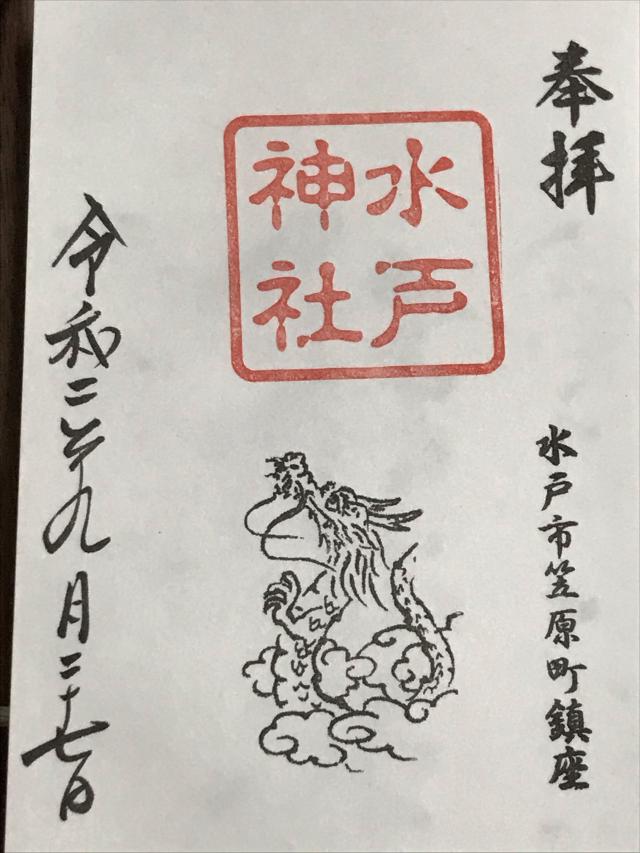 奉拝
水戸市笠原町鎮座
水戸
神社
令和二年九月二十七日